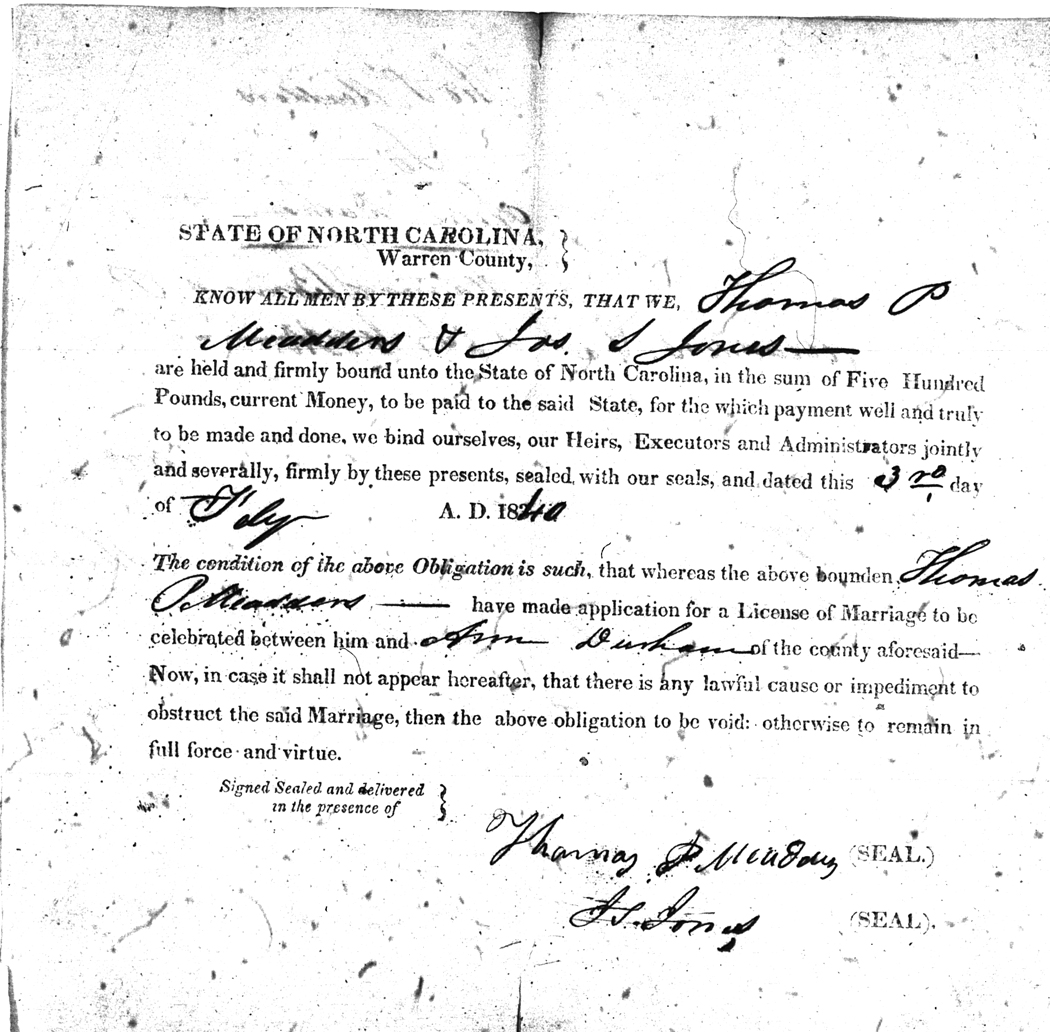 STATE OF NORTH CAROLINA,
Warren County,
KNOW ALL MEN BY THESE PRESENTS, THAT WE, Thomas P
Meadders & Jos. S Jones
are held and firmly bound unto the State of North Carolina, in the sum of Five Hundred
Pounds, current Money, to be paid to the said State, for the which payment well and truly
to be made and done, we bind ourselves, our Heirs, Executors and Administrators jointly
and severally, firmly by these presents, sealed with our seals, and dated this 3rd day
of Feby A. D. 1840
The condition of the above Obligation is such, that whereas the above bounden Thomas
P. Meadders have made application for a License of Marriage to be
celebrated between him and Ann Durham of the county aforesaid—
Now, in case it shall not appear hereafter, that there is any lawful cause or impediment to
obstruct the said Marriage, then the above obligation to be void: otherwise to remain in
full force and virtue.
Signed Sealed and delivered
in the presence of
Thomas P Meadders (SEAL.)
J S. Jones (SEAL).